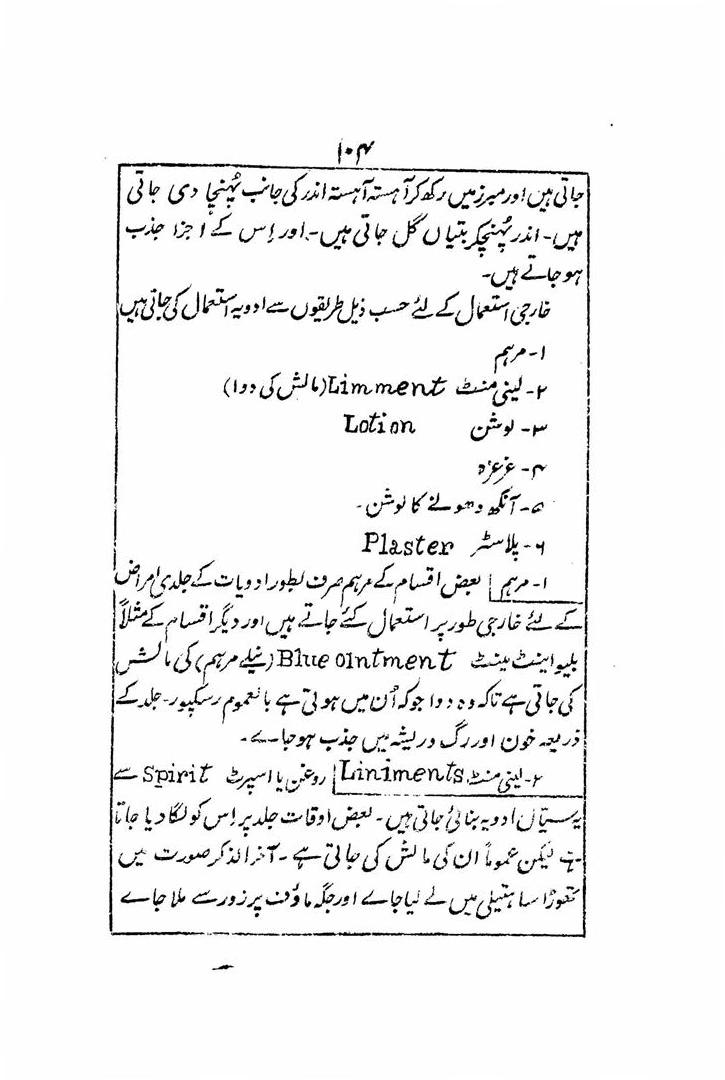 ۱۰۴
جاتی ہیں اور مبرز میں رکھ کر آہستہ آہستہ اندر کی جانب پُہنچا دی جاتی
ہیں۔ اندر پُہنچکر بتیاں گل جاتی ہیں۔ اور اِس کے اجزا جذب
ہو جاتے ہیں۔
خارجی استعمال کے لئے حسب ذیل طریقوں سے ادویہ استعمال کی جاتی ہیں
۱۔ مرہم
۲۔ لینی منٹ Limment (مالش کی دوا)
۳۔ لوشن Lotion
۴۔ غرغرہ
۵۔ آنکھ دھونے کا لوشن۔
۶۔ پلاسٹر Plaster
۱۔ مرہم | بعض اقسام کے مرہم صرف بطور ادویات کے جلدی امراض
کے لئے خارجی طور پر استعمال کئے جاتے ہیں اور دیگر اقسام کے مثلاً
بلیو اینٹ مینٹ Blue oIntment (نیلے مرہم) کی مالش
کی جاتی ہے تاکہ وہ دوا جو کہ اُن میں ہوتی ہے بالعموم رسکپور۔ جلد کے
ذریعہ خون اور رگ و ریشہ میں جذب ہو جاۓ۔
۲۔ لینی منٹ Liniments | روغن یا اسپرٹ Spirit سے
یہ سیال ادویہ بنائی جاتی ہیں۔ بعض اوقات جلد پر اِس کو لگا دیا جاتا
ہے لیکن عموماً ان کی مالش کی جاتی ہے۔ آخر الذکر صورت میں
تھوڑا سا ہتیلی میں لے لیا جاے اور جگہ ماؤف پر زور سے ملا جاے